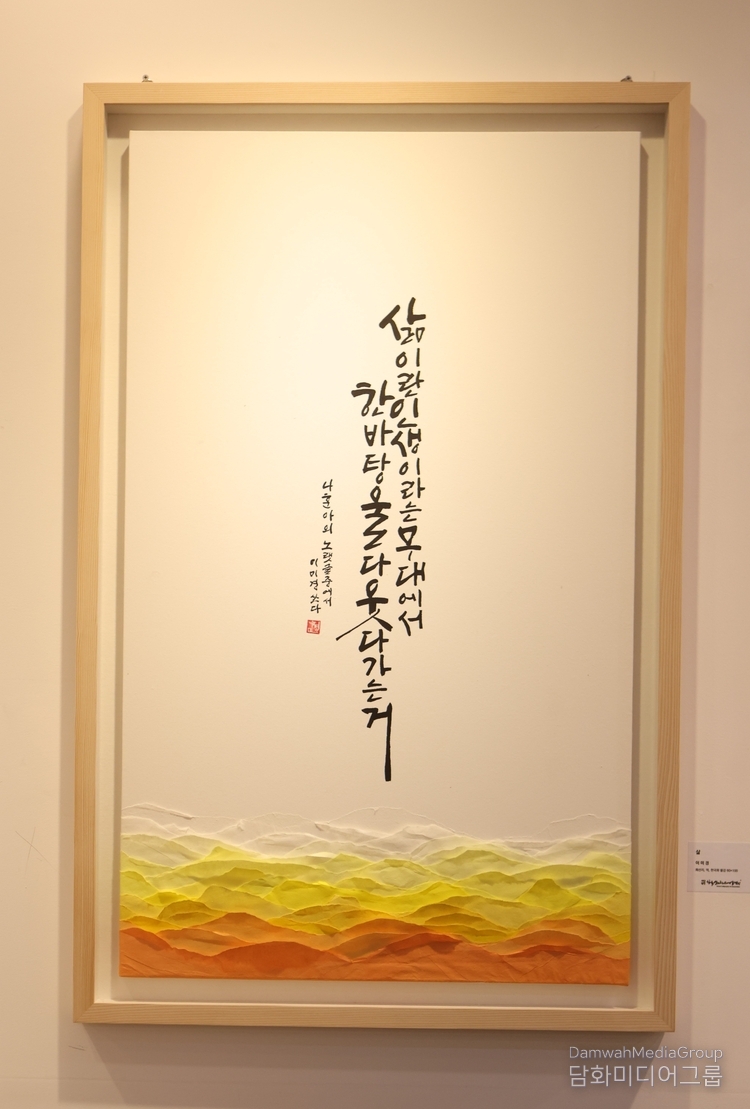 삶이란인생이라는무대에서
한바탕울다웃다가는거
나훈아의 노랫글중에서
이미경 쓰다
삶
DamwahMediaGroup
담화미디어그룹